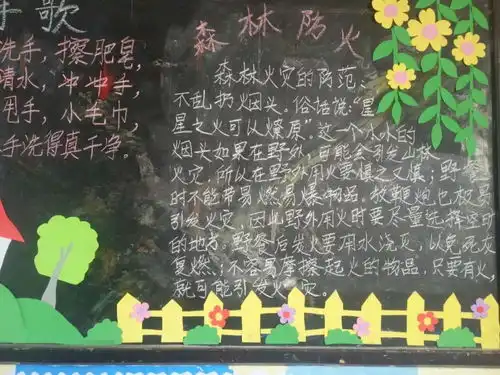 手歌
洗手，擦肥皂，
清水，冲冲手，
甩手，小毛巾，
手洗得真干净。
森林防火
森林火灾的防范：
不乱扔烟头。俗话说："星
星之火可以燎原"。这一个小小的
烟头如果在野外，可能会引发山林
火灾，所以在野外用火要慎之又慎；野餐
时不能带易燃易爆物品，放鞭炮也极易
引发火灾，因此野外用火时要尽量选择空旷
的地方，野餐后炭火要用水浇灭，以免死灰
复燃；不容易摩擦起火的物品，只要有火，
就可能引发火灾。